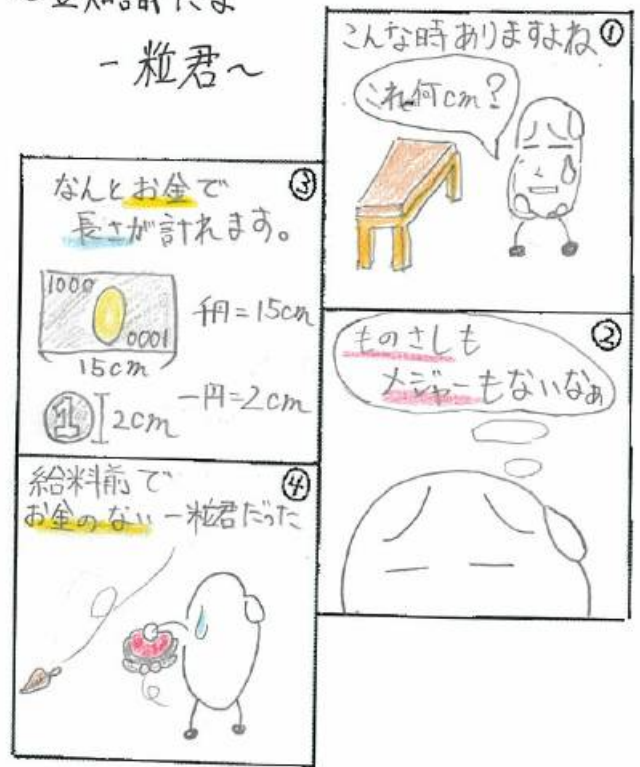 一粒君～
こんな時ありますよね ①
これ何cm?
②
ものさしも
メジャーもないなぁ
③
なんとお金で
長さが計れます。
1000
0001
15cm
千円=15cm
1
2cm
一円=2cm
④
給料前で
お金のない一粒君だった